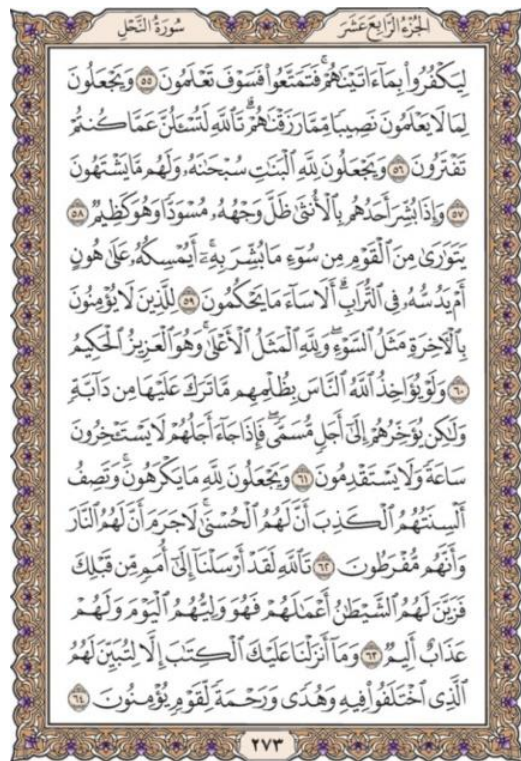 الجُزْءُ الرَّابِعَ عَشَرَ
سُورَةُ النَّحْلِ
لِيَكْفُرُوا۟ بِمَآ ءَاتَيْنَٰهُمْ ۚ فَتَمَتَّعُوا۟ فَسَوْفَ تَعْلَمُونَ ٥٥ وَيَجْعَلُونَ
لِمَا لَا يَعْلَمُونَ نَصِيبًا مِّمَّا رَزَقْنَٰهُمْ ۗ تَٱللَّهِ لَتُسْـَٔلُنَّ عَمَّا كُنتُمْ
تَفْتَرُونَ ٥٦ وَيَجْعَلُونَ لِلَّهِ ٱلْبَنَٰتِ سُبْحَٰنَهُۥ وَلَهُم مَّا يَشْتَهُونَ
٥٧ وَإِذَا بُشِّرَ أَحَدُهُم بِٱلْأُنثَىٰ ظَلَّ وَجْهُهُۥ مُسْوَدًّا وَهُوَ كَظِيمٌ ٥٨
يَتَوَٰرَىٰ مِنَ ٱلْقَوْمِ مِن سُوٓءِ مَا بُشِّرَ بِهِۦٓ ۚ أَيُمْسِكُهُۥ عَلَىٰ هُونٍ
أَمْ يَدُسُّهُۥ فِى ٱلتُّرَابِ ۗ أَلَا سَآءَ مَا يَحْكُمُونَ ٥٩ لِلَّذِينَ لَا يُؤْمِنُونَ
بِٱلْءَاخِرَةِ مَثَلُ ٱلسَّوْءِ ۖ وَلِلَّهِ ٱلْمَثَلُ ٱلْأَعْلَىٰ ۚ وَهُوَ ٱلْعَزِيزُ ٱلْحَكِيمُ
٦٠ وَلَوْ يُؤَاخِذُ ٱللَّهُ ٱلنَّاسَ بِظُلْمِهِم مَّا تَرَكَ عَلَيْهَا مِن دَآبَّةٍ
وَلَٰكِن يُؤَخِّرُهُمْ إِلَىٰٓ أَجَلٍ مُّسَمًّى ۖ فَإِذَا جَآءَ أَجَلُهُمْ لَا يَسْتَـْٔخِرُونَ
سَاعَةً ۖ وَلَا يَسْتَقْدِمُونَ ٦١ وَيَجْعَلُونَ لِلَّهِ مَا يَكْرَهُونَ ۚ وَتَصِفُ
أَلْسِنَتُهُمُ ٱلْكَذِبَ أَنَّ لَهُمُ ٱلْحُسْنَىٰ ۖ لَا جَرَمَ أَنَّ لَهُمُ ٱلنَّارَ
وَأَنَّهُم مُّفْرَطُونَ ٦٢ تَٱللَّهِ لَقَدْ أَرْسَلْنَآ إِلَىٰٓ أُمَمٍ مِّن قَبْلِكَ
فَزَيَّنَ لَهُمُ ٱلشَّيْطَٰنُ أَعْمَٰلَهُمْ فَهُوَ وَلِيُّهُمُ ٱلْيَوْمَ وَلَهُمْ
عَذَابٌ أَلِيمٌ ٦٣ وَمَآ أَنزَلْنَا عَلَيْكَ ٱلْكِتَٰبَ إِلَّا لِتُبَيِّنَ لَهُمُ
ٱلَّذِى ٱخْتَلَفُوا۟ فِيهِ ۙ وَهُدًى وَرَحْمَةً لِّقَوْمٍ يُؤْمِنُونَ ٦٤
٢٧٣